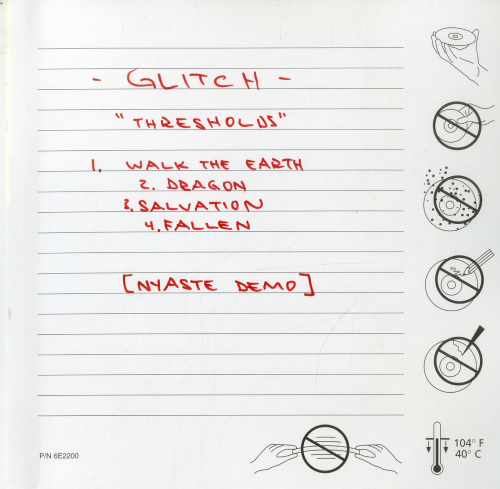 - GLITCH -
"THRESHOLDS"
1. WALK THE EARTH
2. DRAGON
3. SALVATION
4. FALLEN
[NYASTE DEMO]
P/N 6E2200
104° F
40° C